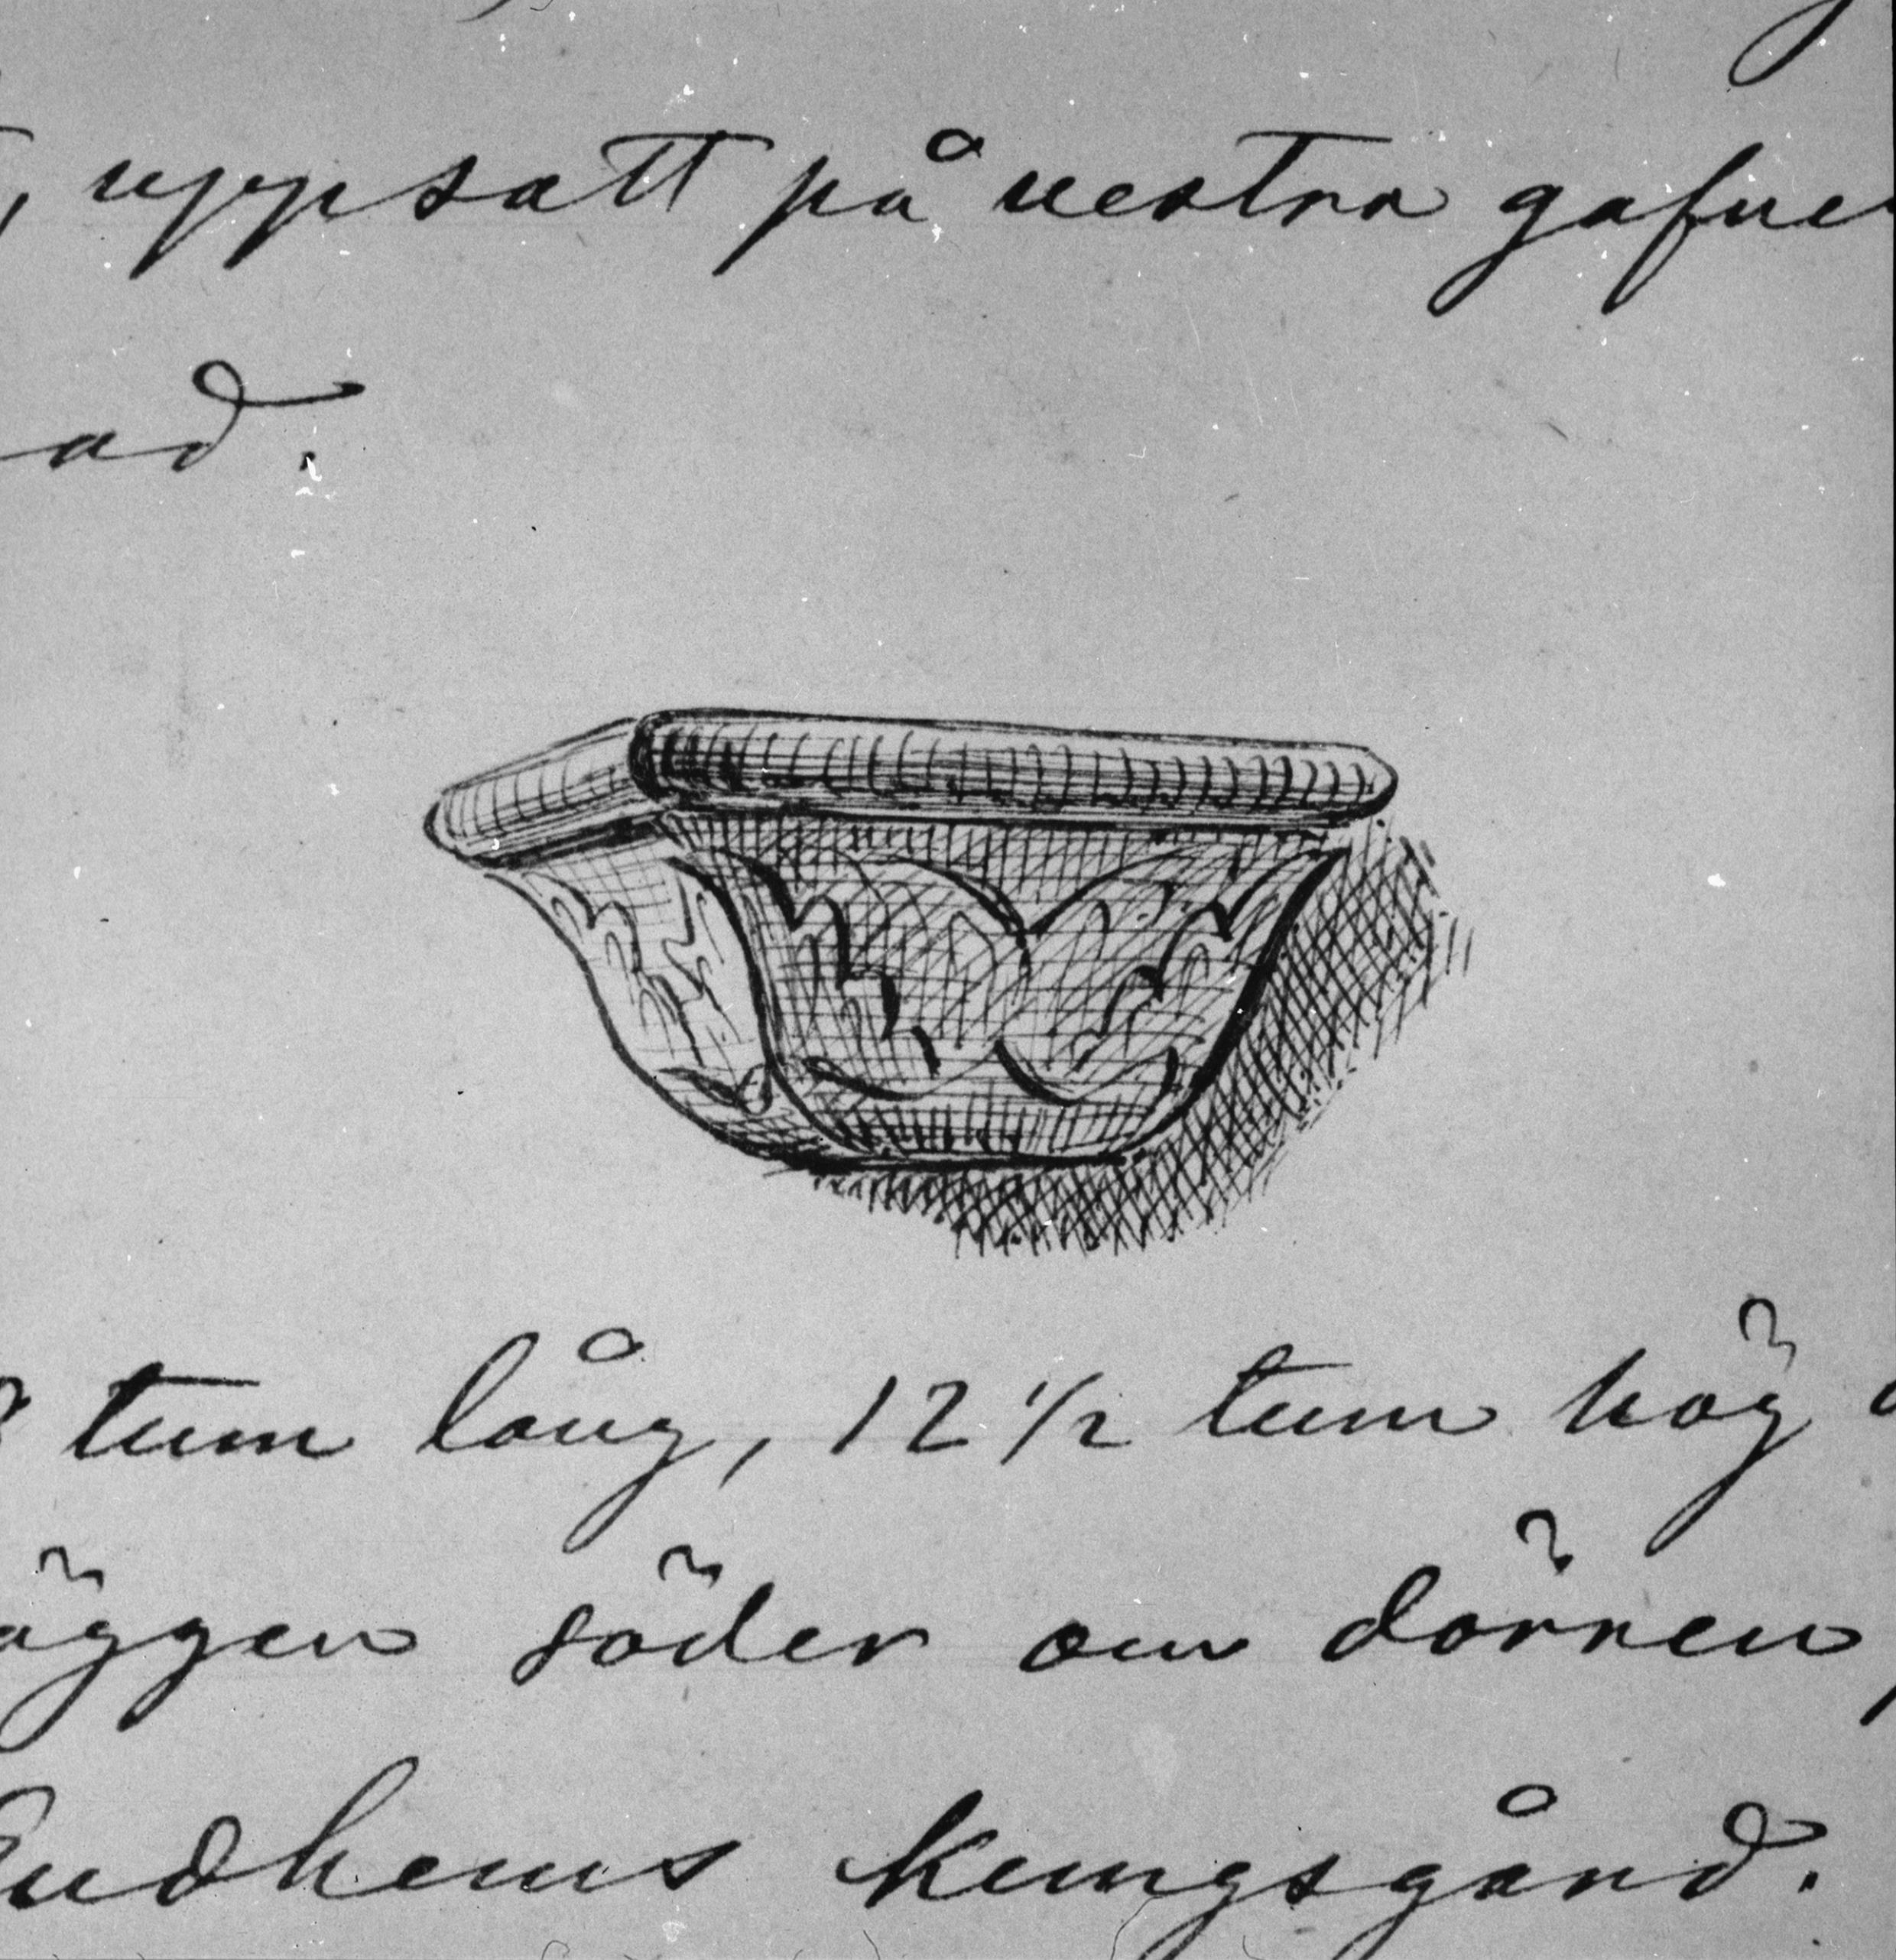 , uppsatt på vestra gafvel
ad.
tum lång, 12 1/2 tum hög
äggen söder om dörren,
Gudhems kungsgård.